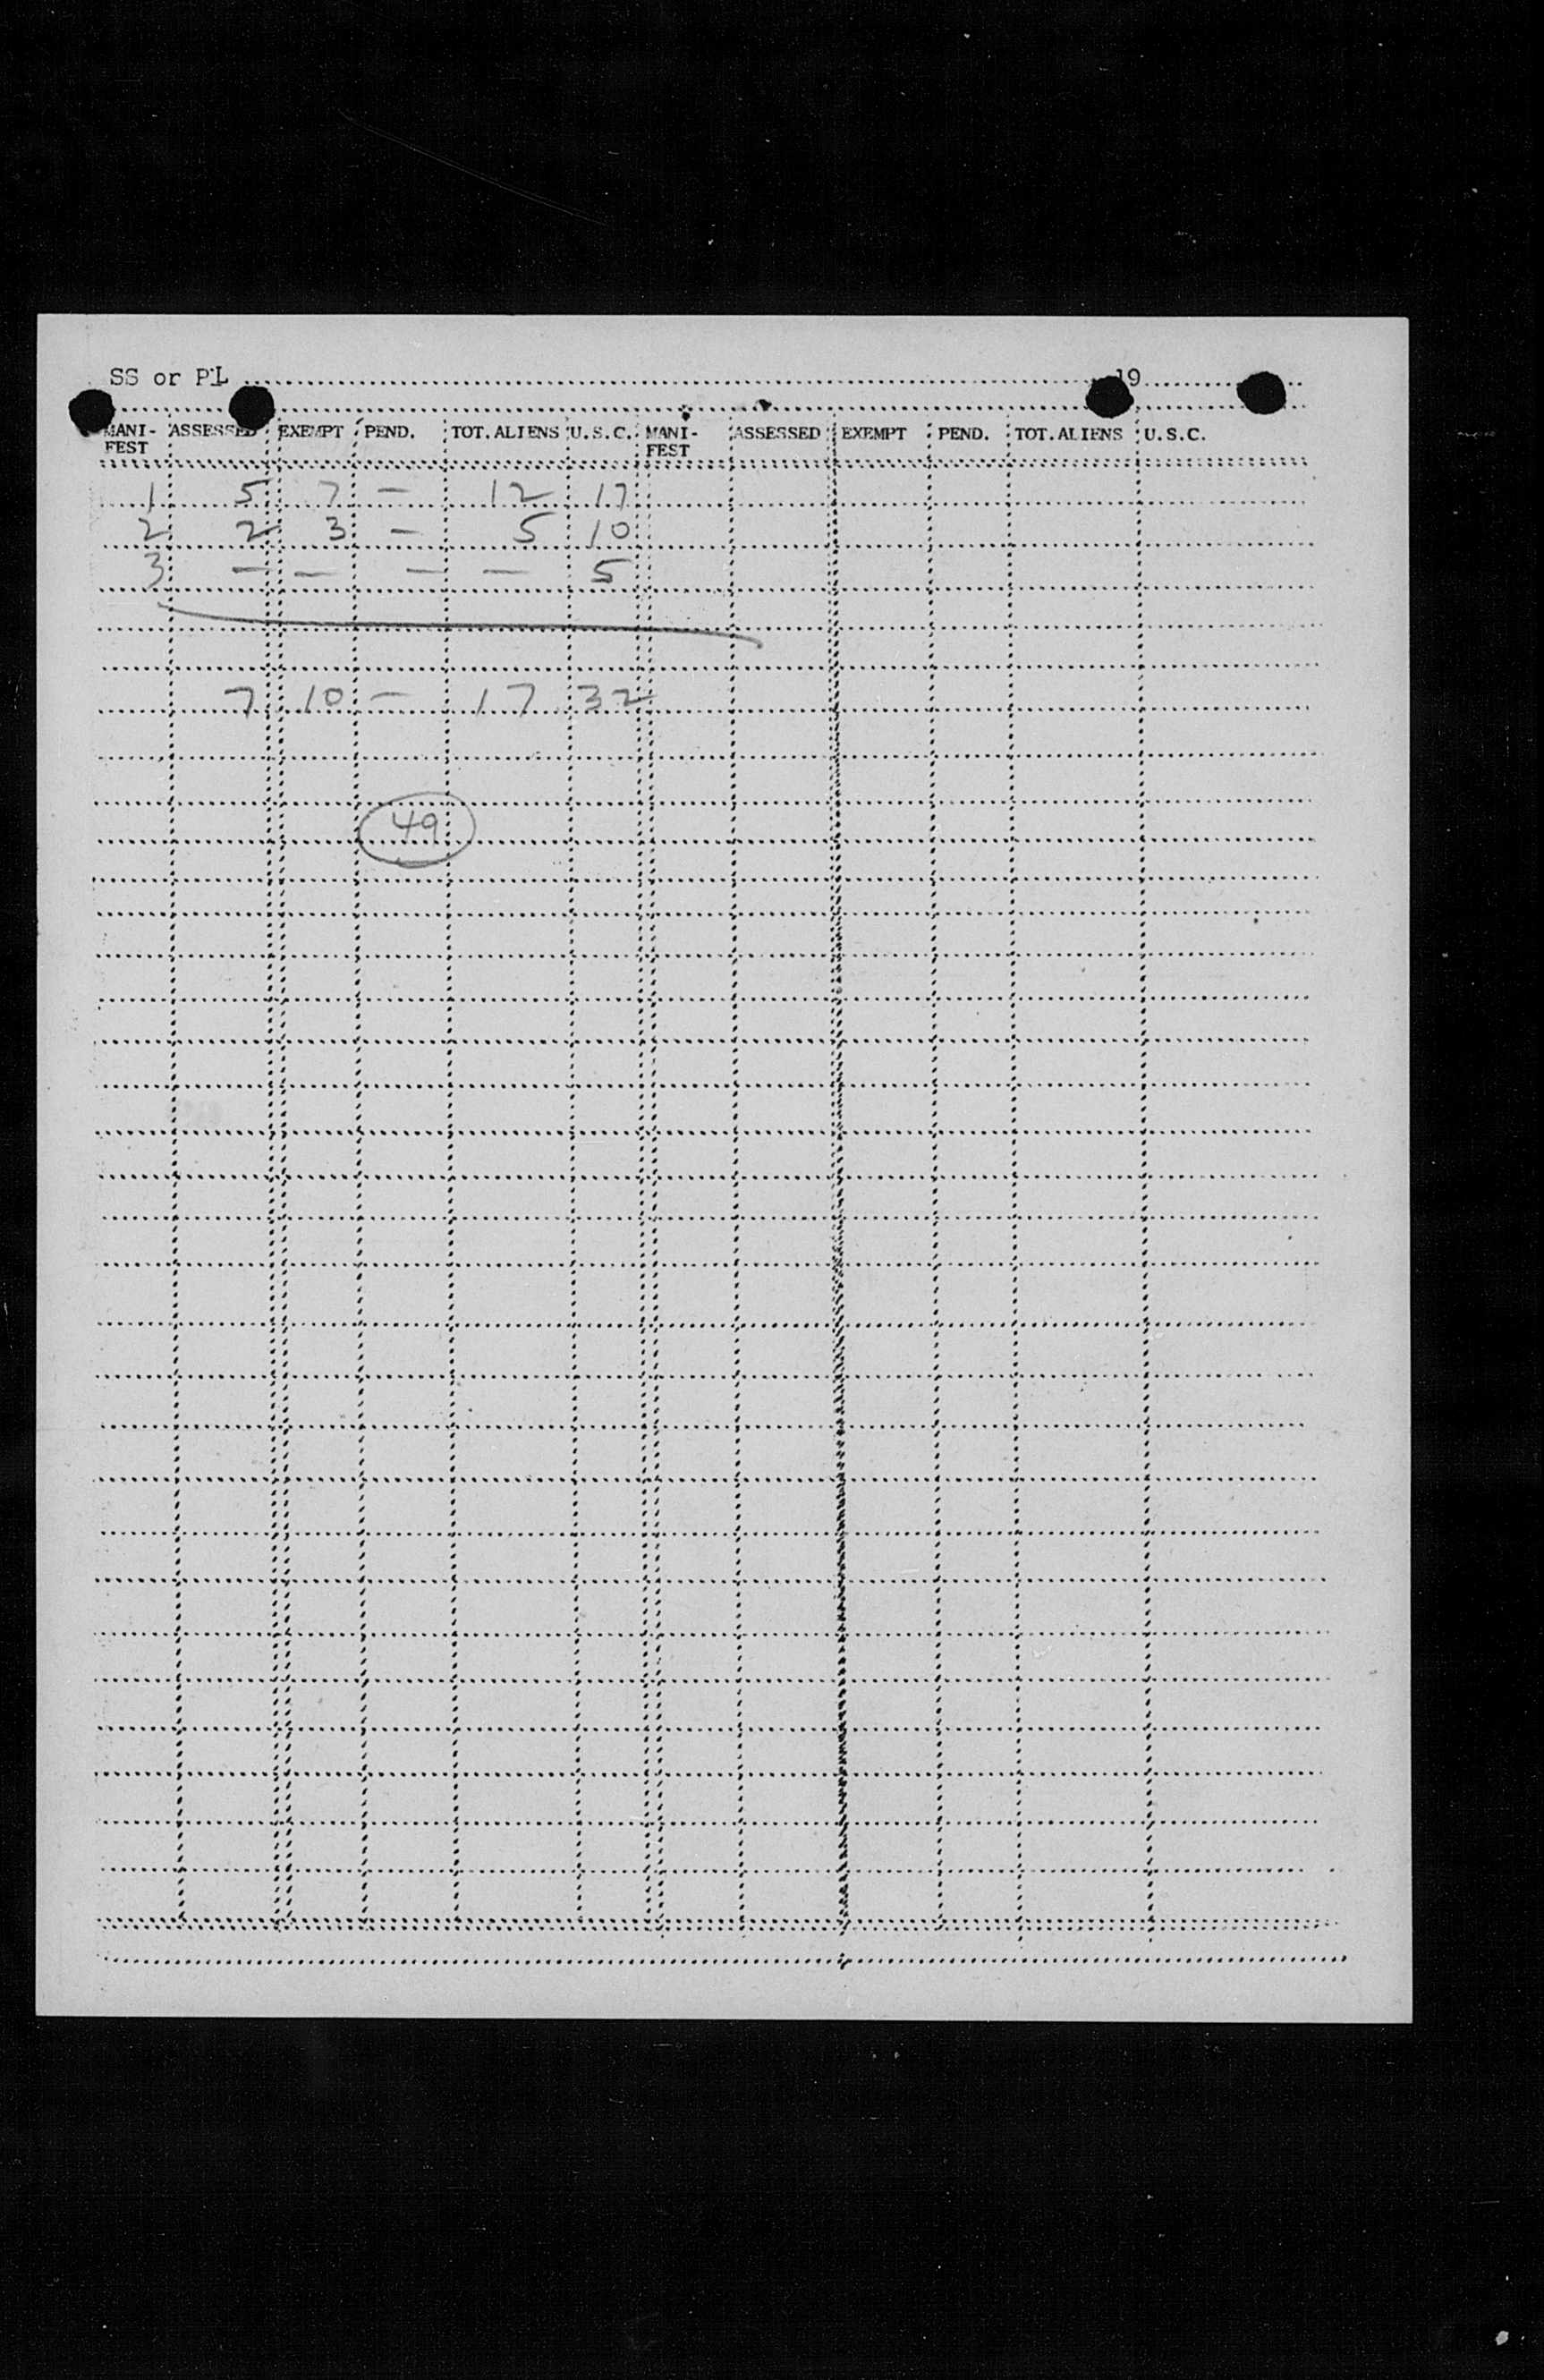 SS or PL 19
MANI-FEST ASSESSED EXEMPT PEND. TOT. ALIENS U.S.C. MANI-FEST ASSESSED EXEMPT PEND. TOT. ALIENS U.S.C.
1 5 7 — 12 17
2 2 3 — 5 10
3 — — — — 5
7 10 — 17 32
49